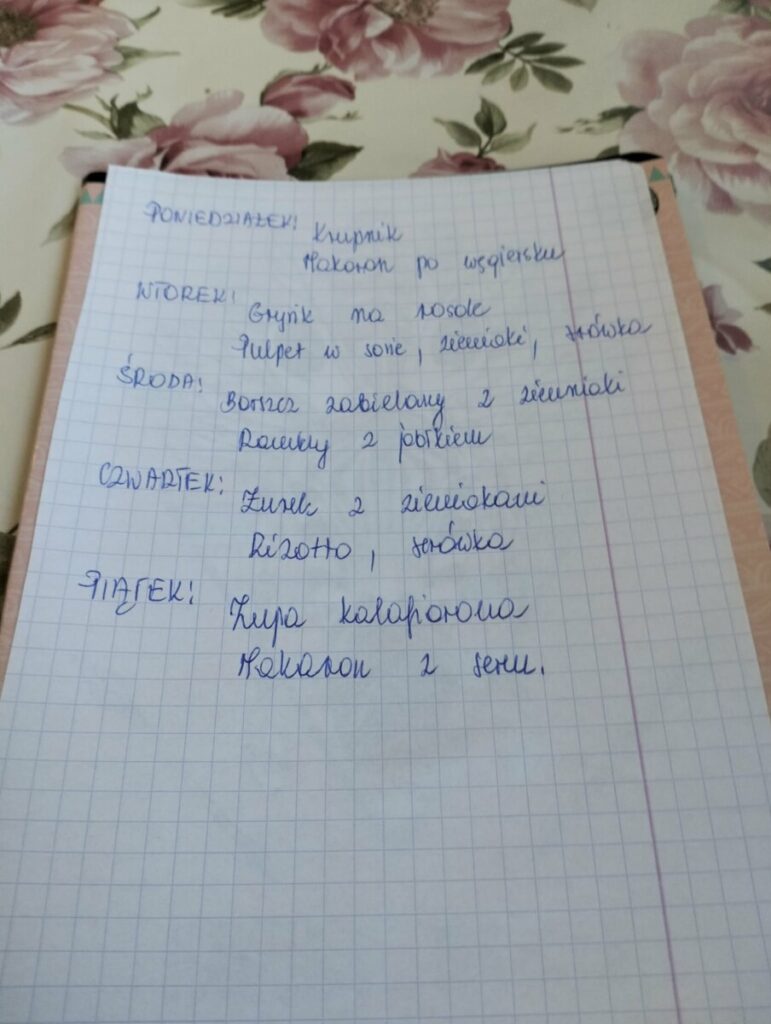 PONIEDZIAŁEK: Krupnik
Makaron po węgiersku
WTOREK: Gryśik na rosole
Pulpet w sosie, ziemiaki, surówka
ŚRODA: Barszcz zabielany z ziemniaki
Racuchy z jabłkiem
CZWARTEK: Żurek z ziemiakami
Rizotto, surówka
PIĄTEK: Zupa kalafiorowa
Makaron z serem.